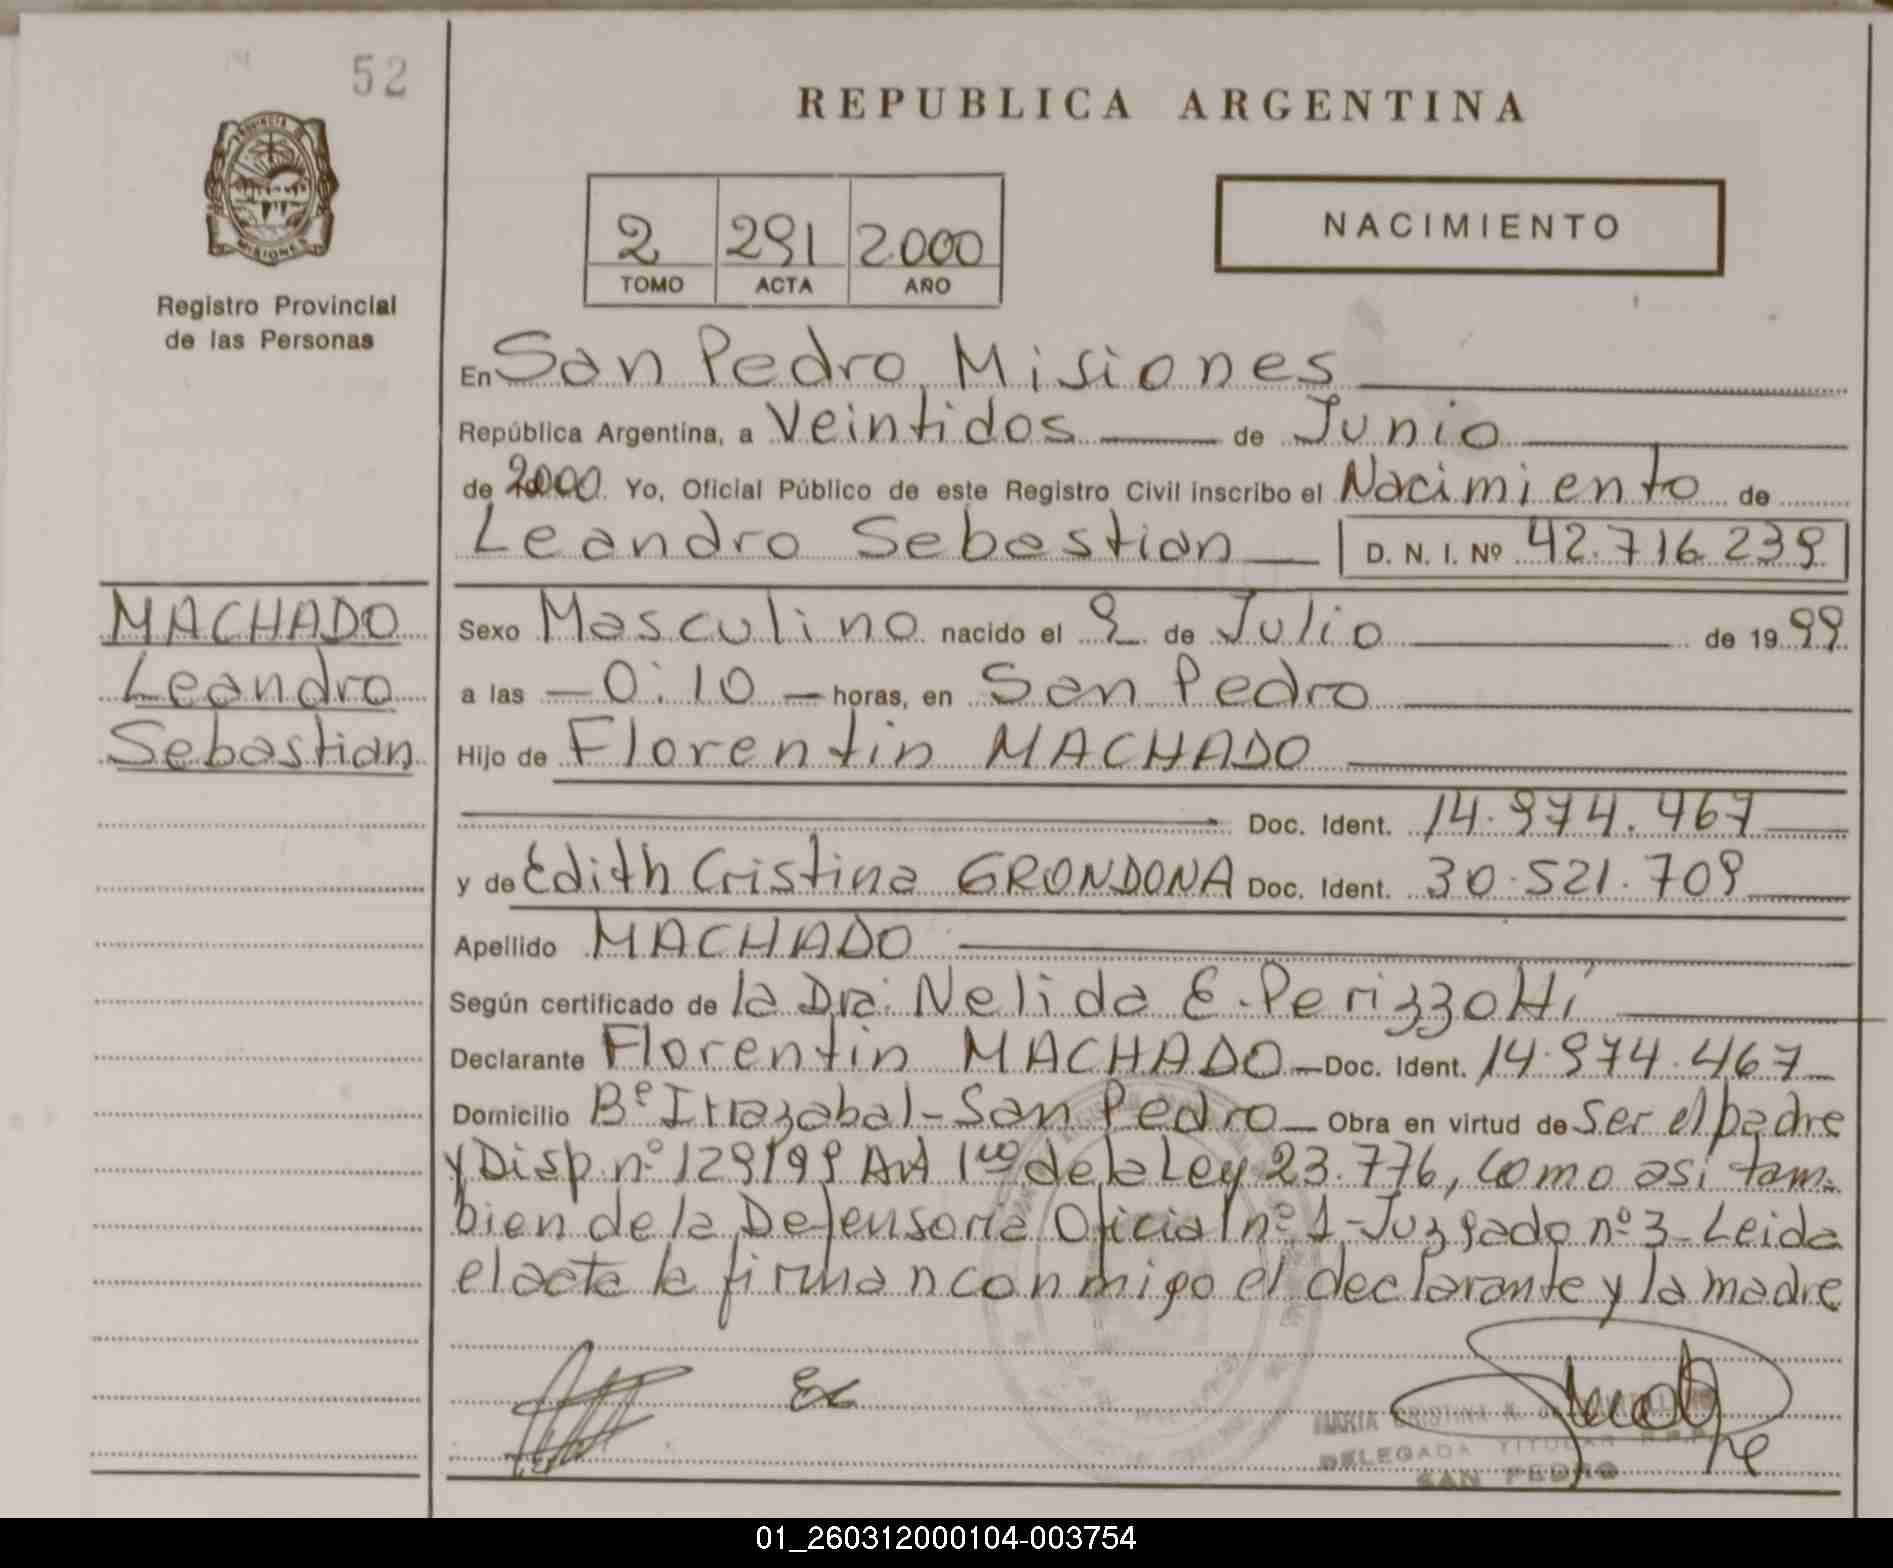 52
REPUBLICA ARGENTINA
PROVINCIA DE
MISIONES
Registro Provincial
de las Personas
2 291 2.000
TOMO ACTA AÑO
NACIMIENTO
En San Pedro, Misiones
República Argentina, a Veintidos de Junio
de 2000. Yo, Oficial Público de este Registro Civil inscribo el Nacimiento de
Leandro Sebastian D. N. I. Nº 42.716.239
MACHADO
Leandro
Sebastian
Sexo Masculino nacido el 9 de Julio de 1999
a las - 0:10 - horas, en San Pedro
Hijo de Florentin MACHADO
Doc. Ident. 14.974.467
y de Edith Cristina GRONDONA Doc. Ident. 30.521.709
Apellido MACHADO
Según certificado de la Dra: Nelida E. Perizzotti
Declarante Florentin MACHADO - Doc. Ident. 14.974.467
Domicilio Bº Irrazabal - San Pedro - Obra en virtud de Ser el padre
y Disp. nº 129/99 Art 1ro de la Ley 23.776, como asi tam-
bien de la Defensoria Oficial nº 1 - Juzgado nº 3 - Leida
el acta la firman conmigo el declarante y la madre
MARIA CRISTINA
DELEGADA TITULAR R.P.P.
SAN PEDRO
01_260312000104-003754